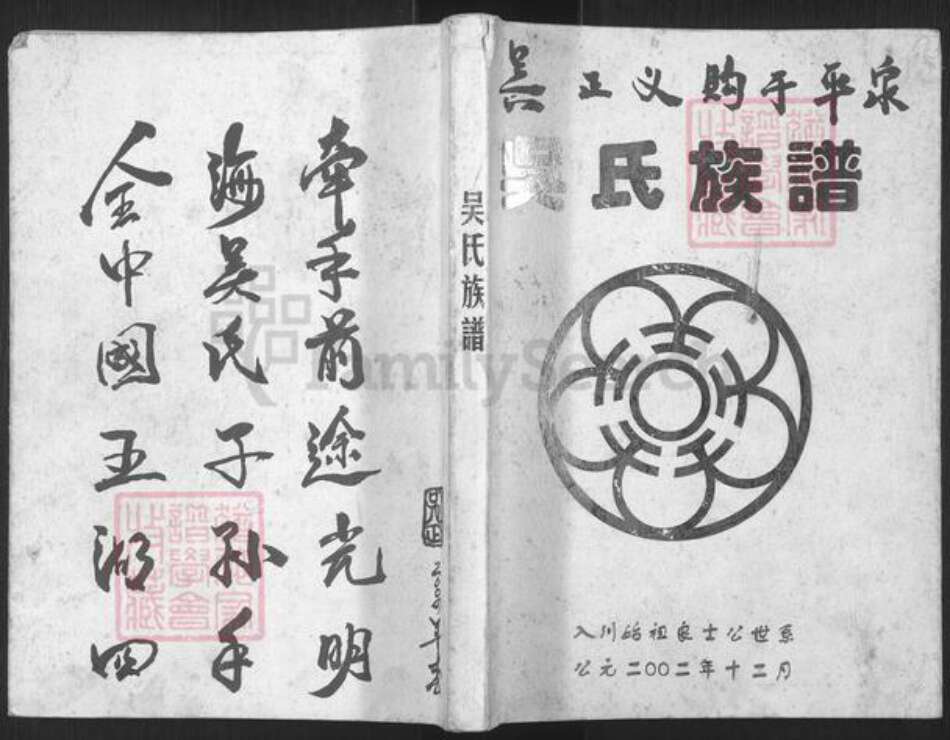 吴正义购于平泉
吴氏族譜
入川始祖良士公世系
公元二00二年十二月
吴氏族譜
全中國五湖四
海吴氏子孙手
牵手前途光明
FamilySearch